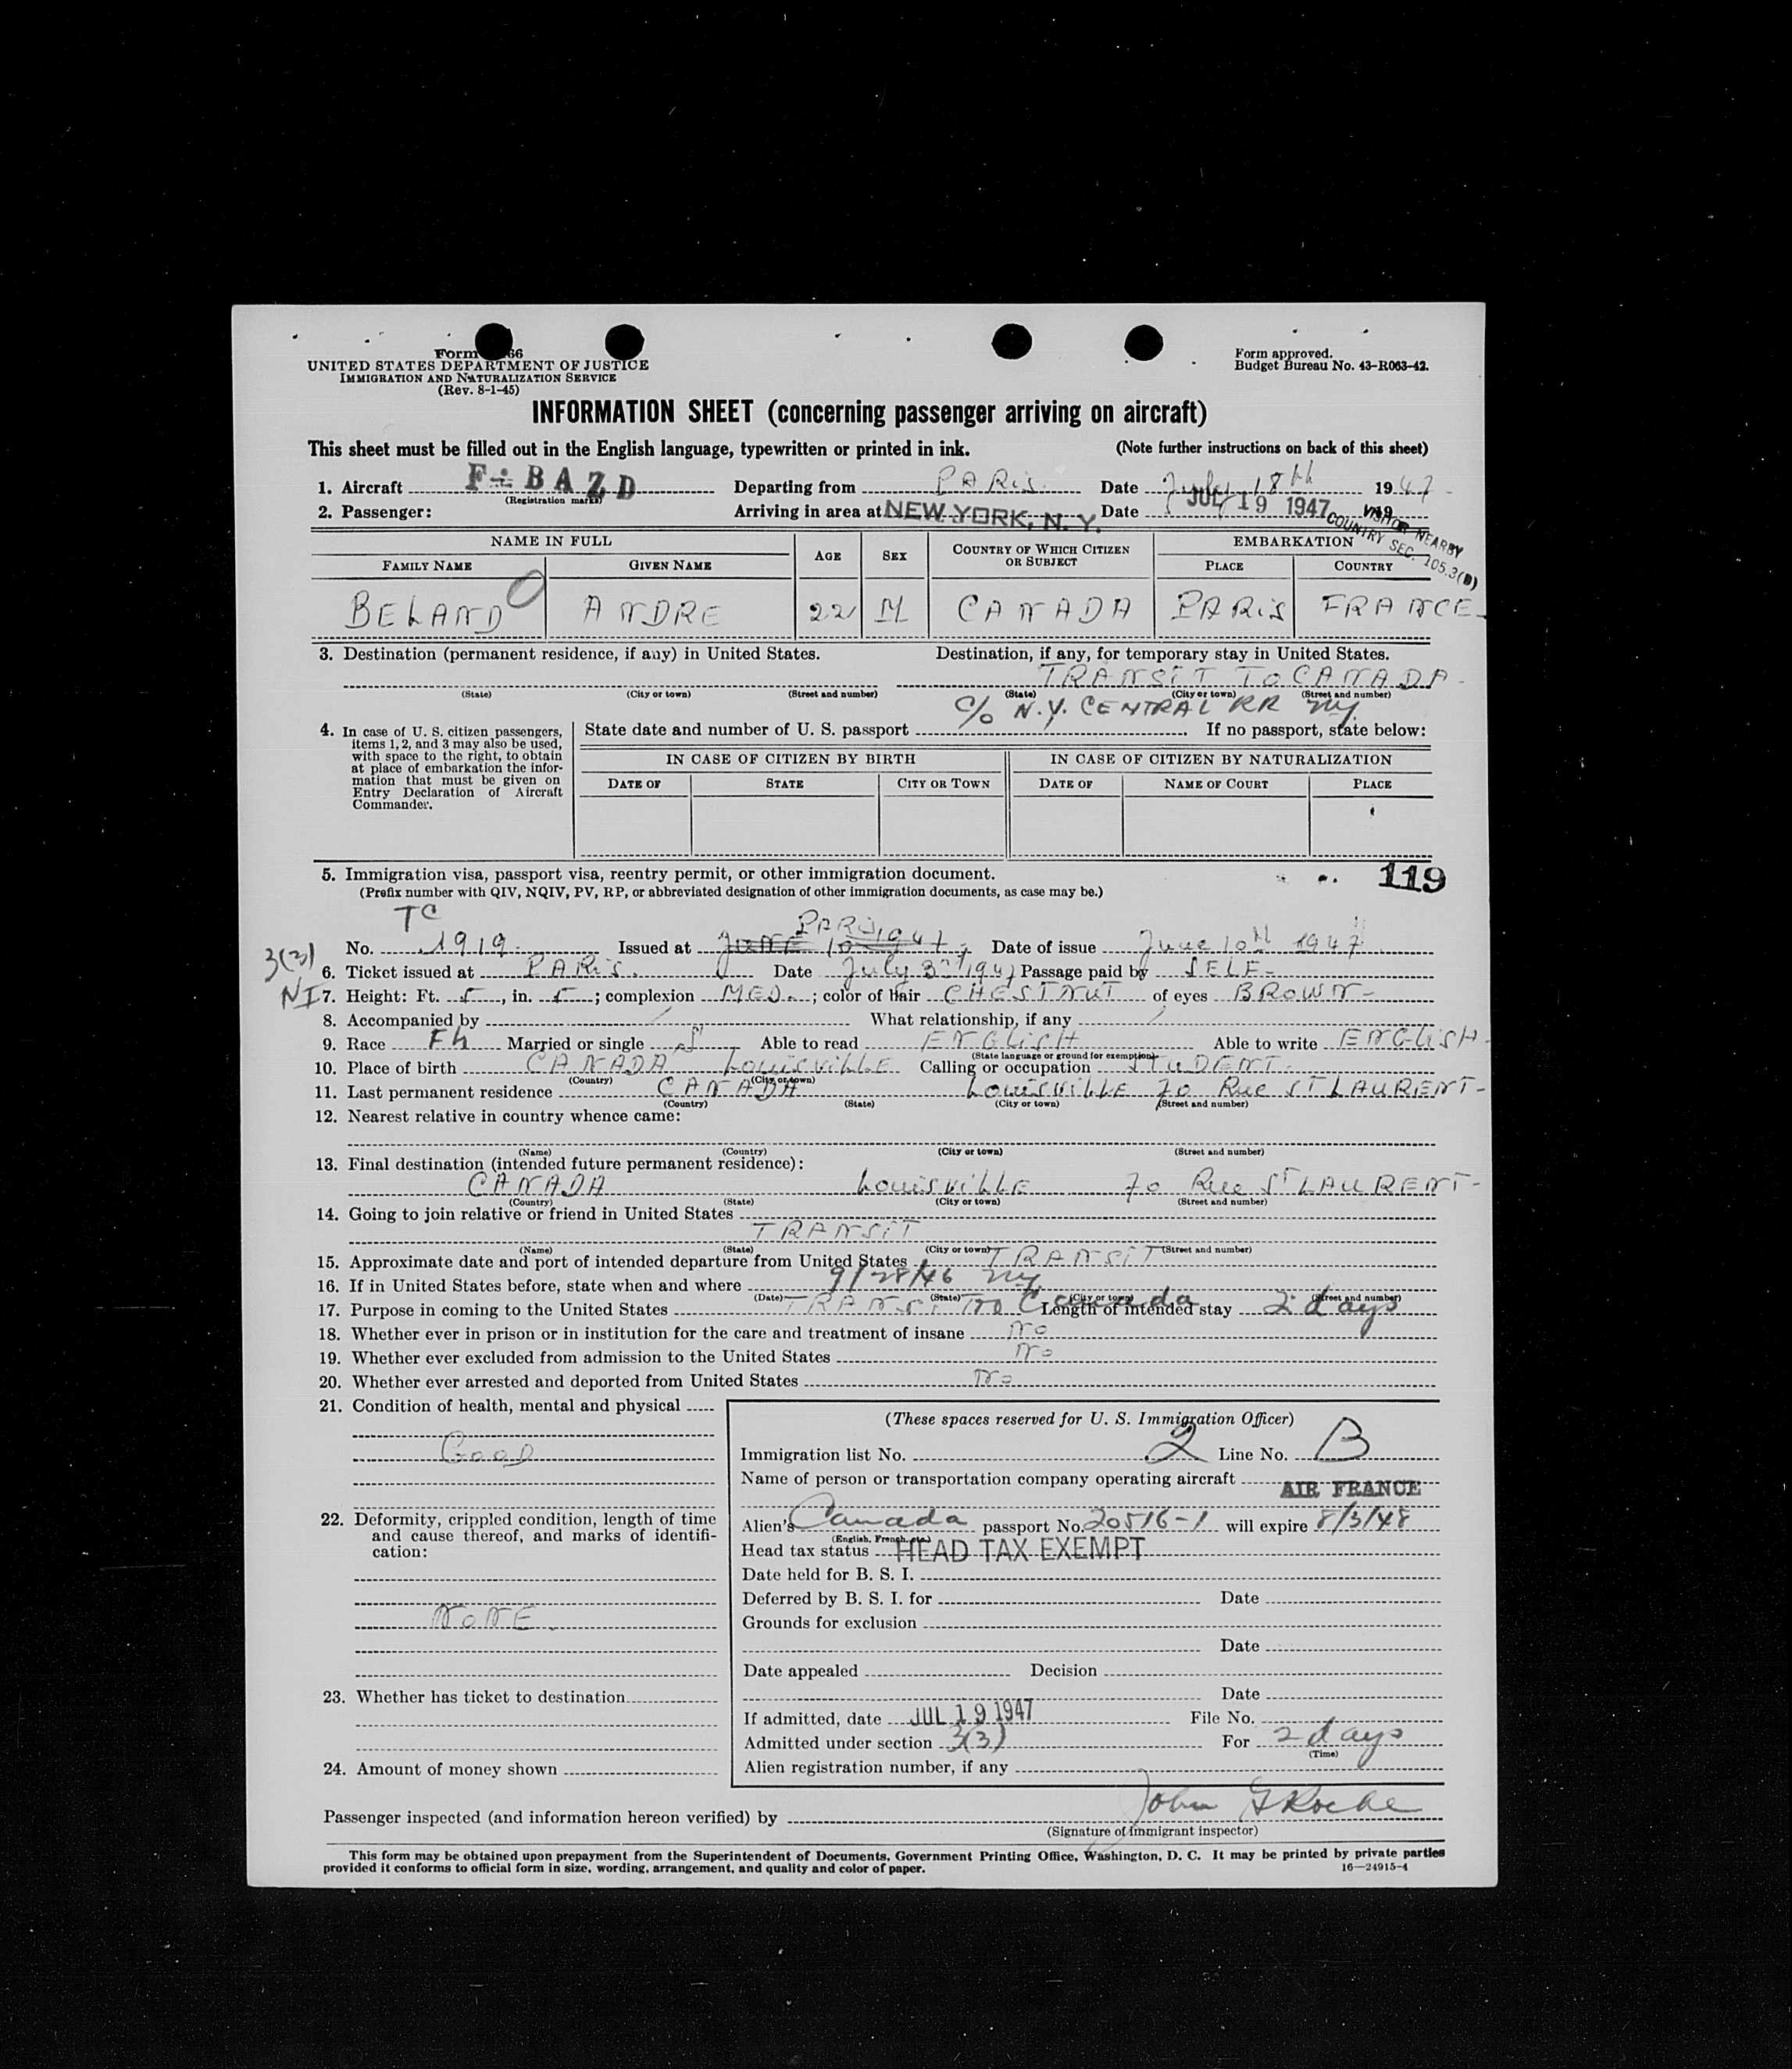 Form 66
UNITED STATES DEPARTMENT OF JUSTICE
IMMIGRATION AND NATURALIZATION SERVICE
(Rev. 8-1-45)
Form approved.
Budget Bureau No. 43-R063-42.
INFORMATION SHEET (concerning passenger arriving on aircraft)
This sheet must be filled out in the English language, typewritten or printed in ink. (Note further instructions on back of this sheet)
1. Aircraft F-BAZD Departing from PARIS Date July 18th 1947
(Registration marks)
2. Passenger: Arriving in area at NEW YORK, N. Y. Date JUL 19 1947 19
VISITOR NEARBY
COUNTRY SEC. 105.3(B)
NAME IN FULL AGE SEX COUNTRY OF WHICH CITIZEN OR SUBJECT EMBARKATION
FAMILY NAME GIVEN NAME PLACE COUNTRY
BELAND ANDRE 22 M CANADA PARIS FRANCE
3. Destination (permanent residence, if any) in United States. Destination, if any, for temporary stay in United States.
TRANSIT TO CANADA
(State) (City or town) (Street and number) (State) (City or town) (Street and number)
C/O N.Y. CENTRAL RR NY.
4. In case of U. S. citizen passengers, items 1, 2, and 3 may also be used, with space to the right, to obtain at place of embarkation the information that must be given on Entry Declaration of Aircraft Commander.
State date and number of U. S. passport If no passport, state below:
IN CASE OF CITIZEN BY BIRTH IN CASE OF CITIZEN BY NATURALIZATION
DATE OF STATE CITY OR TOWN DATE OF NAME OF COURT PLACE
5. Immigration visa, passport visa, reentry permit, or other immigration document. 119
(Prefix number with QIV, NQIV, PV, RP, or abbreviated designation of other immigration documents, as case may be.)
TC PARIS
No. 1919 Issued at June 10 1947 Date of issue June 10th 1947
3(3)
6. Ticket issued at PARIS. Date July 3rd 1947 Passage paid by SELF
NI
7. Height: Ft. 5, in. 5; complexion MED.; color of hair CHESTNUT of eyes BROWN
8. Accompanied by What relationship, if any
9. Race Fh Married or single S Able to read ENGLISH Able to write ENGLISH
(State language or ground for exemption)
10. Place of birth CANADA LOUISVILLE Calling or occupation STUDENT
(Country) (City or town)
11. Last permanent residence CANADA LOUISVILLE 70 Rue ST LAURENT
(Country) (State) (City or town) (Street and number)
12. Nearest relative in country whence came:
(Name) (Country) (City or town) (Street and number)
13. Final destination (intended future permanent residence):
CANADA LOUISVILLE 70 Rue ST LAURENT
(Country) (State) (City or town) (Street and number)
14. Going to join relative or friend in United States
TRANSIT
(Name) (State) (City or town) (Street and number)
15. Approximate date and port of intended departure from United States TRANSIT
16. If in United States before, state when and where 9/28/46 NY
(Date) (State) (City or town) (Street and number)
17. Purpose in coming to the United States TRANSIT to Canada Length of intended stay 2 days
18. Whether ever in prison or in institution for the care and treatment of insane No
19. Whether ever excluded from admission to the United States No
20. Whether ever arrested and deported from United States No
21. Condition of health, mental and physical
GOOD
22. Deformity, crippled condition, length of time and cause thereof, and marks of identification:
NONE
23. Whether has ticket to destination
24. Amount of money shown
(These spaces reserved for U. S. Immigration Officer)
Immigration list No. 2 Line No. B
Name of person or transportation company operating aircraft
AIR FRANCE
Alien's Canada passport No. 20516-1 will expire 8/3/48
(English, French, etc.)
Head tax status HEAD TAX EXEMPT
Date held for B. S. I.
Deferred by B. S. I. for Date
Grounds for exclusion
Date
Date appealed Decision
Date
If admitted, date JUL 19 1947 File No.
Admitted under section 3(3) For 2 days
(Time)
Alien registration number, if any
Passenger inspected (and information hereon verified) by John G Roche
(Signature of immigrant inspector)
This form may be obtained upon prepayment from the Superintendent of Documents, Government Printing Office, Washington, D. C. It may be printed by private parties
provided it conforms to official form in size, wording, arrangement, and quality and color of paper. 16—24915-4